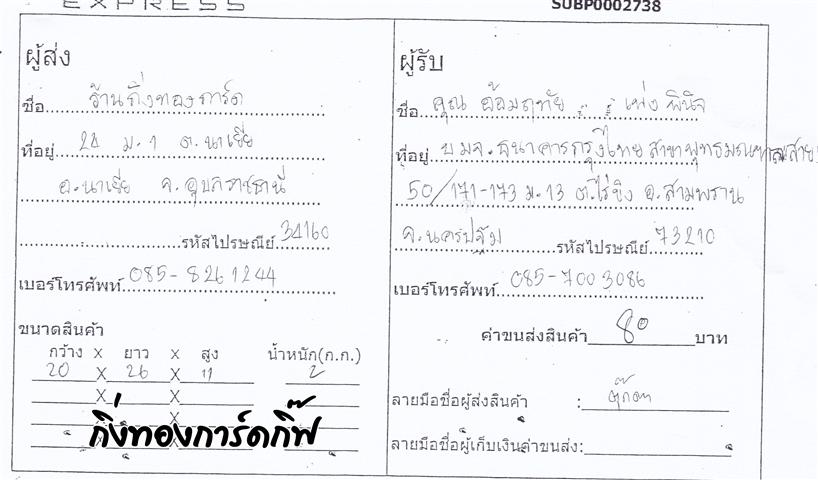 EXPRESS
SUBP0002738
ผู้ส่ง
ชื่อ ร้านกิ่งทองการ์ด
ที่อยู่ 24 ม.1 ต.นาเยีย
อ.นาเยีย จ.อุบลราชธานี
รหัสไปรษณีย์ 34160
เบอร์โทรศัพท์ 085-8261244
ขนาดสินค้า
กว้าง x ยาว x สูง น้ำหนัก(ก.ก.)
20 X 26 X 11 2
X X
X
X
กิ่งทองการ์ดกิ๊ฟ
ผู้รับ
ชื่อ คุณ อ้อมฤทัย เพ่งพินิจ
ที่อยู่ บมจ.ธนาคารกรุงไทย สาขาพุทธมณฑลสาย
50/171-173 ม.13 ต.ไร่ขิง อ.สามพราน
จ.นครปฐม รหัสไปรษณีย์ 73210
เบอร์โทรศัพท์ 085-7003086
ค่าขนส่งสินค้า 80 บาท
ลายมือชื่อผู้ส่งสินค้า : ตุ๊กตา
ลายมือชื่อผู้เก็บเงินค่าขนส่ง: